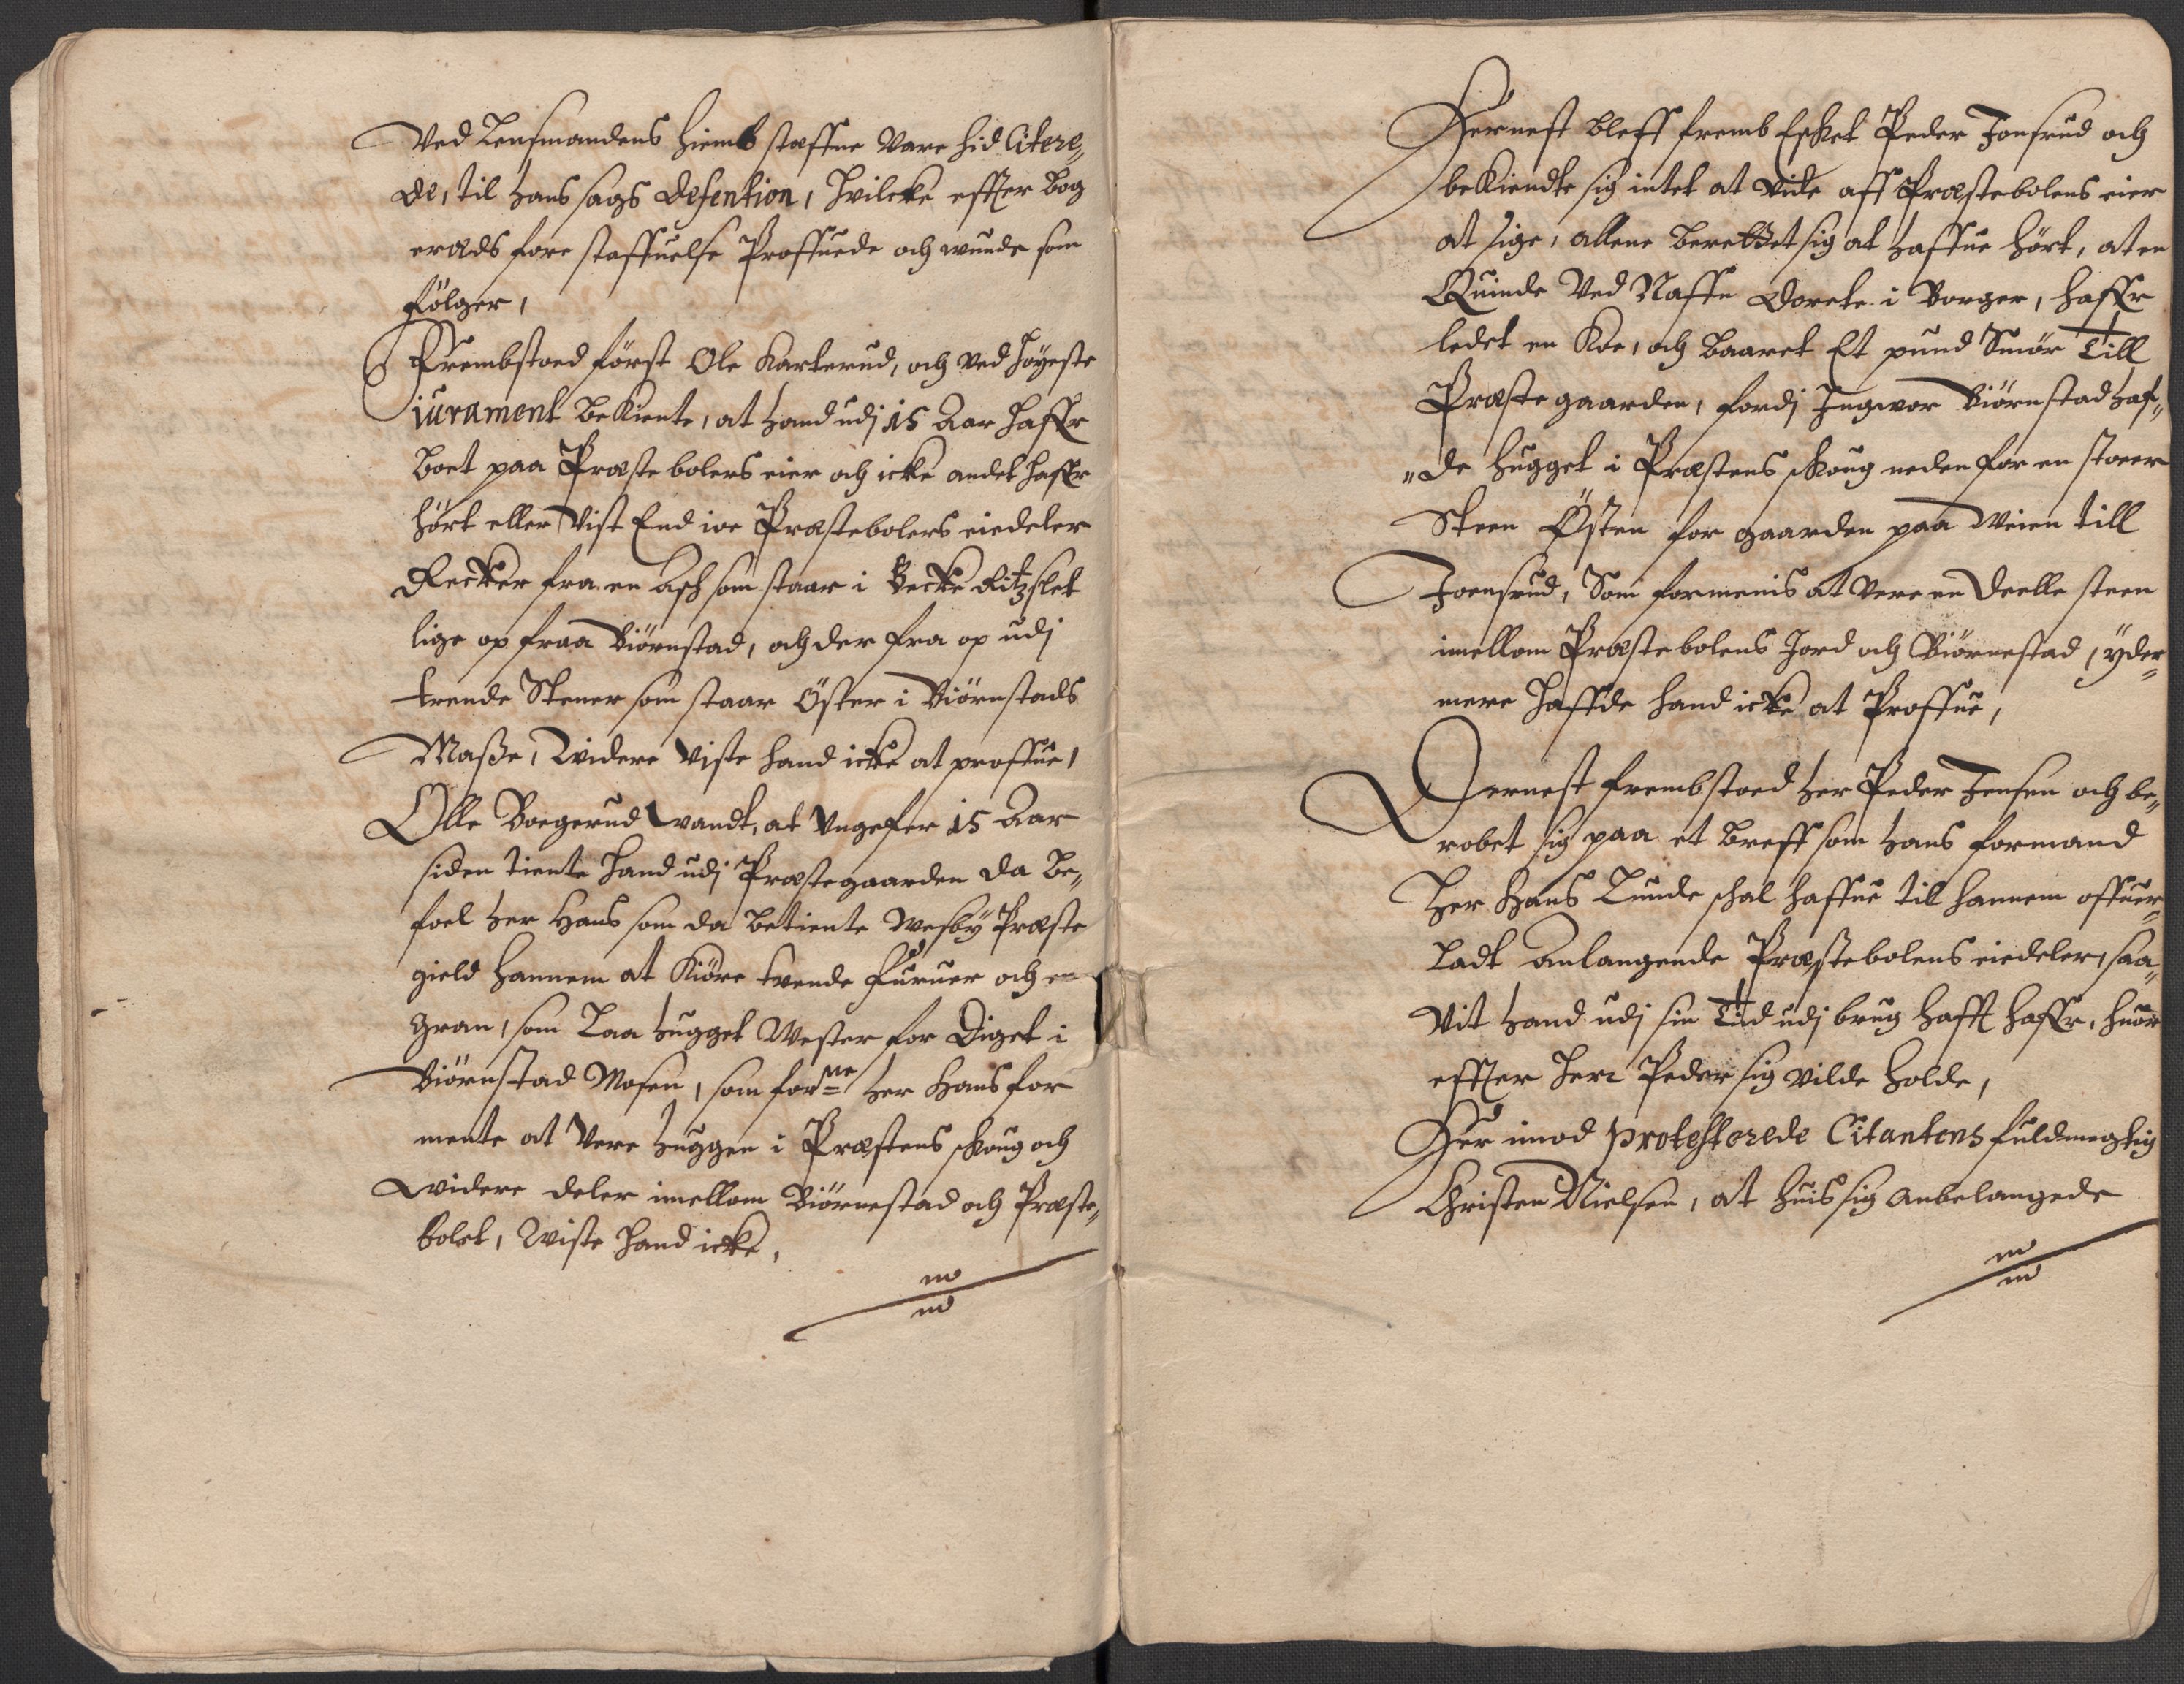 Ved Lensmandens hiemb staffne vare hid Citere„
de, til hans sags defention, hvilcke effter bog
eræds fore staffuelse Proffuede och wunde som
følger,
Frembstoed først Ole Karterud, och ved høyeste
jurament bekiente, at hand udj 15 Aar haffr
boet paa Præste bolers eier och icke andet haffr
hørt eller vist End ioe Præstebolers eiedeler
Recker fra en Ash som staar i Becke Ritzslet
lige op fraa Biørnstad, och der fra op udj
trende Stener som staar Öster i Biørnstads
Maße, Widere viste hand icke at proffue,
Olle Borgerud wandt, at ungefer 15 Aar
siden tiente hand udj Præstegaarden da be„
foel her Hans som da betiente Wesby Præste
gield hannem at Kiøre tvende furuer och en
gran, som Laa hugget Wester for Diget i
Biørnstad Mosen, som forne her Hans for
mente at Vere huggen i Præstens skoug och
widere deler imellom Biørnestad och Præste„
bolet, Wiste hand icke,
m
m
Dernest bleff fremb Esket Peder Jonsrud och
bekiendte sig intet at vide aff Præstebolens eier
at sige, allene berettet sig at haffue hørt, at en
Quinde ved Naffn Dorete i Borger, haffr
ledet en Koe, och baaret Et pund Smør till
Præste gaarden, fordj Ingvor Biørnstad haf„
„de hugget i Præstens skoug neden for en stoer
Steen Östen for gaarden paa Weien till
Joensrud, Som formenis at vere en Deelle steen
imellom Præstebolens Jord och Biørnestad, yder„
mere haffde hand icke at Proffue,
Dernest frembstoed her Peder Jensen och be„
robet sig paa et breff som hans formand
Her Hans Lunde schal haffue til hannem offuer„
Ladt anlangende Præstebolens eiedeler, saa„
vit hand udj sin tiid udj brug hafft haffr, huor
effter Herr Peder sig vilde holde,
Her imod protesterede Citantens fuldmegtig
Christen Nielsen, at huis sig anbelangede
m
m